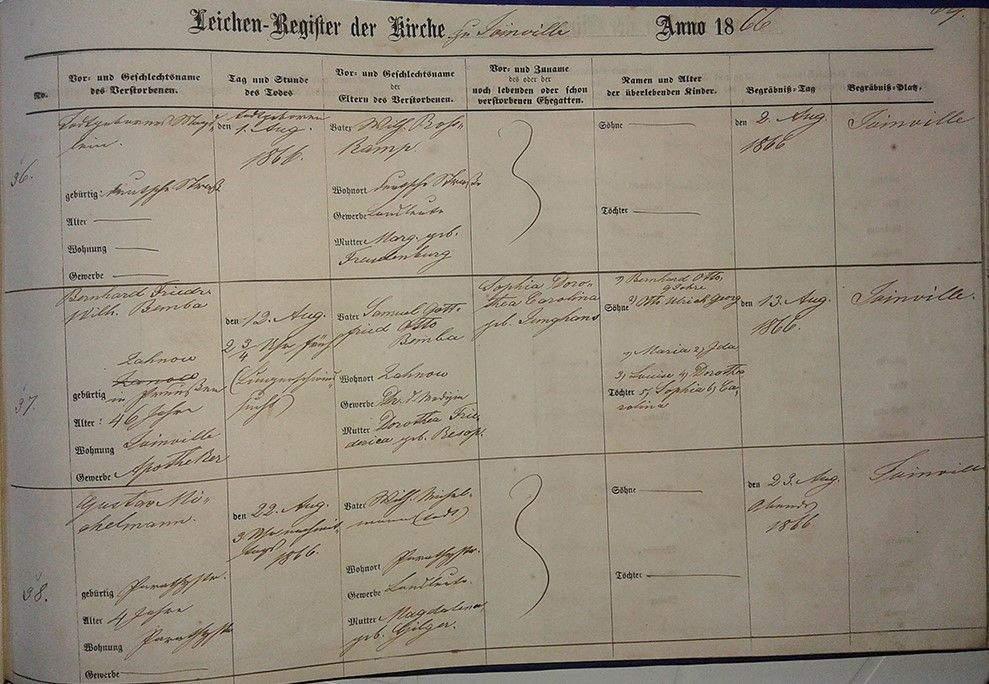 Leichen-Register der Kirche zu Joinville Anno 1866
No.
Vor- und Geschlechtsname
des Verstorbenen.
Tag und Stunde
des Todes
Vor- und Geschlechtsname
der
Eltern des Verstorbenen.
Vor- und Zuname
des oder der
noch lebenden oder schon
verstorbenen Ehegatten.
Namen und Alter
der überlebenden Kinder.
Begräbniß-Tag
Begräbniß-Platz.
36.
Todtgeborenes
gebürtig: deutsche Straße
Alter
Wohnung
Gewerbe
den todtgeboren
1. Aug.
1866.
Vater Wilh. Rose-
kamp
Wohnort deutsche Straße
Gewerbe Landleute
Mutter Marg. geb.
Freudenburg
Söhne
Töchter
den 2. Aug
1866
Joinville
37.
Bernhard Friedr.
Wilh. Bemba
Zahnow
gebürtig in Preußen
Alter: 46 Jahre
Wohnung Joinville
Gewerbe Apotheker
den 12. Aug.
2 3/4 Uhr früh
(Lungenschwind-
sucht)
Vater Samuel Gott-
fried Otto
Bemba
Wohnort Zahnow
Gewerbe Dr. d. Medizin
Mutter Dorothea Frie-
derica geb. Besop.
Sophia Doro-
thea Carolina
geb. Junghans
1) Bernhard Otto,
9 Jahre
Söhne 2) Otto Ulrich Georg
1) Maria 2) Ida
3) Louise 4) Dorothea
Töchter 5) Sophia 6) Ca-
rolina
den 13. Aug.
1866.
Joinville.
38.
Gustav Mi-
chelmann.
gebürtig
Alter 4 Jahre
Wohnung
Gewerbe
den 22. Aug.
3 Uhr nachmit-
tags
1866.
Vater Wilh. Michel-
mann (todt)
Wohnort
Gewerbe Landleute.
Mutter Magdalena
geb. Gilgen.
Söhne
Töchter
den 23. Aug.
Abends
1866
Joinville